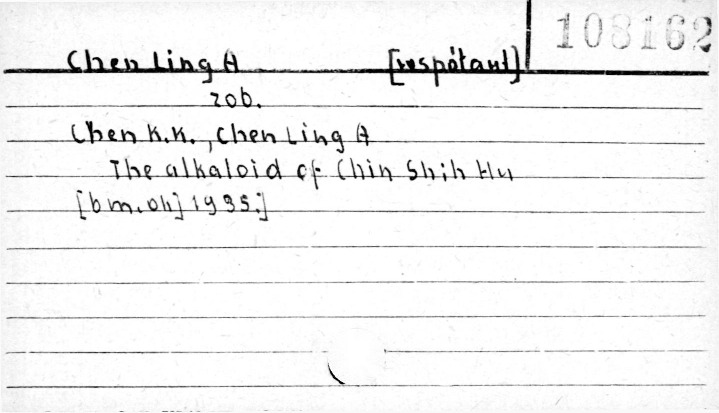 108162
Chen Ling A [respótant]
zob.
Chen K.K., Chen Ling A
The alkaloid of Chin Shih Hu
[b m. oh] 1935.]